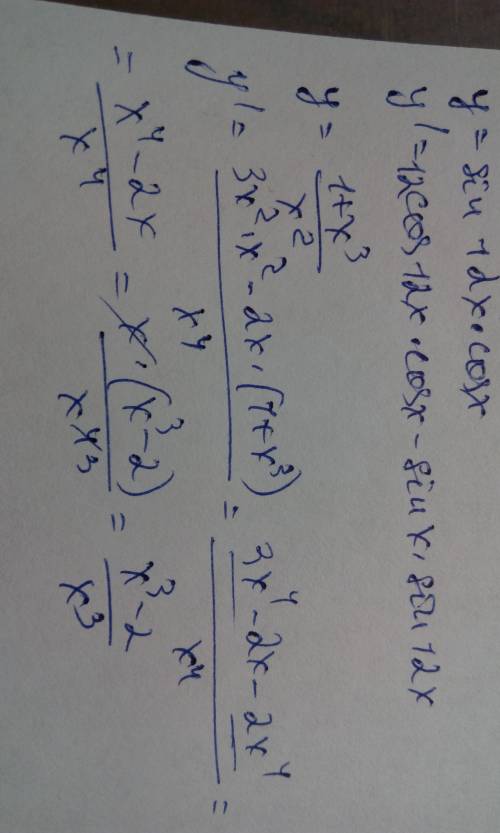 y = sin 12x · cosx
y' = 12cos12x · cosx - sinx · sin12x
y = (1+x³)/x²
y' = (3x²·x² - 2x·(1+x³))/x⁴ = (3x⁴ - 2x - 2x⁴)/x⁴ =
= (x⁴ - 2x)/x⁴ = x·(x³-2)/x⁴³ = (x³-2)/x³